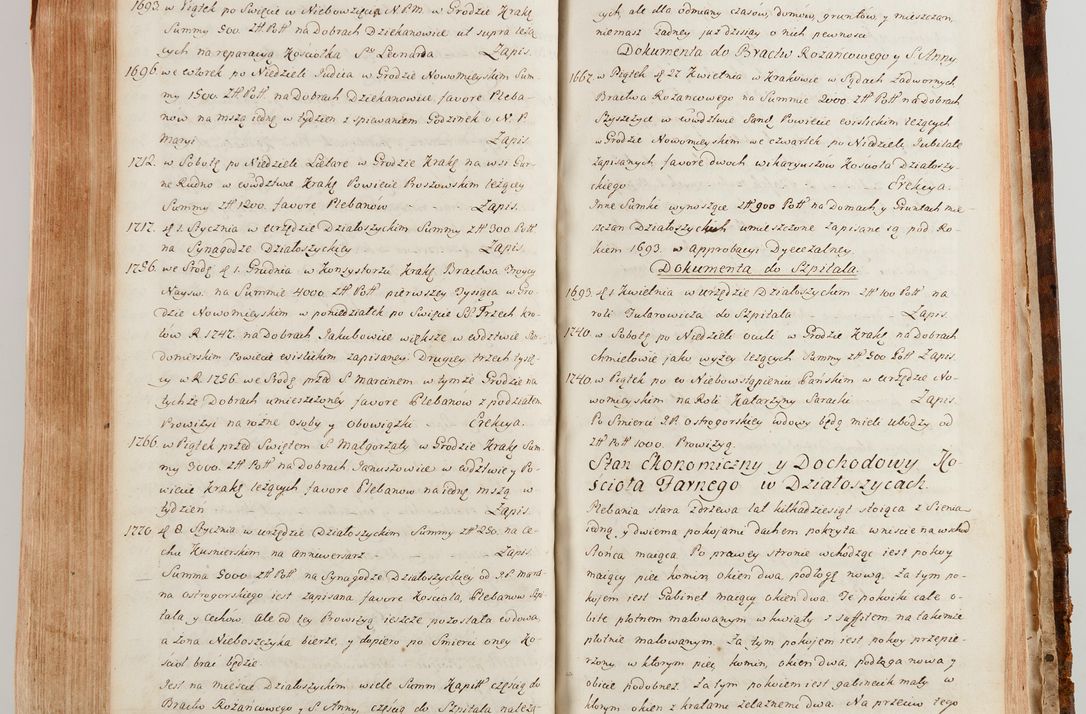 1693. w Piątek po Swięcie w Niebowzięcia N.P.M. w Grodzie Krakę
Summy 500 złł Poll na Dobrach Dziekanowice ut supra leżą
cych na reparacyą Kosciołka Sgo Leonarda Zapis.
1696. we wtorek po Niedziele Judica w Grodzie Nowomieyskim Sum-
my 1500. złł Poll na Dobrach Dziekanowice favore Pleba-
now na mszą iednę w tydzien z spiewaniem Godzinek o N. P.
Maryi Zapis.
1712. w Sobotę po Niedziele Lætare w Grodzie Krakę na wsi Gur-
ne Rudno w wudztwie Krakę Powiecie Proszowskim leżącey
Summy złł 1200. favore Plebanów Zapis.
1717. d 2. Stycznia w urzędzie Działoszyckim Summy złł 300 Poll
na Synagodze Działoszyckiey Zapis.
1756. we Srodę d 1. Grudnia w Konsystorzu Krakę Bractwa Troycy
Nayśw. na Summie 4000. złł Poll pierwszey Tysiąca w Gro-
dzie Nowomieyskim w poniedziałek po Swięcie SS Trzech Kro-
low R. 1747. na Dobrach Jakubowice większe w wdztwie San-
domerskim Powiecie wislickim zapisaney. Drugiey trzech tysię-
cy w R. 1756. we Srodę przed S. Marcinem w tymże Grodzie na
tychże Dobrach umieszczoney favore Plebanow z podziałem
Prowizyi na rożne osoby y obowiązki Erekcya.
1766. w Piątek przed Swiętem S. Małgorzaty w Grodzie Krakę Sum-
my 3000. złł Poll na Dobrach Januszowice w wdztwie y Po-
wiecie Krakę leżących favore Plebanow na iednę mszą w
tydzien Zapis.
1770. d 8. Stycznia w urzędzie Działoszyckim Summy złł 250. na Ce-
chu Kusnierskim na anniwersarz Zapis.
Summa 5000 złł Poll na Synagodze Działoszyckiey od J.P. Marci-
na Ostrogorskiego iest zapisana favore Koscioła, Plebanow Szpi-
tala, y Cechow, ale od tey Prowizyą ieszcze pozostała wdowa,
a żona Nieboszczyka bierze, y dopiero po Smierci oney Ko-
ściół brać będzie.
Jest na mieście Działoszyckim wiele Summ Kapitł częścią do
Bractw Rożańcowego y S. Anny, częścią do Szpitala należą-
cych, ale dla odmiany czasów, domów, gruntow, y mieszczan,
niemasz żadney juz dzisiay o nich pewności
Dokumenta do Bractw Rożańcowego y S. Anny
1667. w Piątek d 27. Kwietnia w Krakowie w Sądach Zadwornych
Bractwa Rożańcowego na Summie 2000 złł Poll na dobrach
Szyszczyce w wudztwie Sand Powiecie wislickim leżących
w Grodzie Nowomieyskim we czwartek po Niedziele Jubilate
zapisanych favore dwoch wikaryuszow Kościoła Działoszy-
ckiego Erekcya.
Jnne Sumki wynoszące złł 900 Poll na domach y Gruntach mie-
szczan Działoszyckich umieszczone zapisane są pod Ro-
kiem 1693. w approbacyi Dyecezalney.
Dokumenta do Szpitala.
1693. d 1 Kwietnia w urzędzie Działoszyckim złł 100 Poll na
roli Tularowicza do Szpitala Zapis.
1740. w Sobotę po Niedzieli Oculi w Grodzie Krakę na dobrach
Chmielowie jako wyżey leżących Summy złł 500 Poll Zapis.
1740. w Piątek po w Niebowstąpieniu Pańskim w urzędzie No-
womieyskim na Roli Katarzyny Saracki Zapis.
Po Smierci J.P. Ostrogorskiey wdowy będą mieli ubodzy od
złł Poll 1000. Prowizyą.
Stan Ekonomiczny y Dochodowy Ko-
ścioła Farnego w Działoszycach.
Plebania stara zdrzewa lat kilkadziesiąt stoiąca z Sienia
iedną, y dwiema pokojami dachem pokryta wniście na wschod
Słońca maiąca. Po prawey stronie wchodząc iest pokoy
maiący piec komin, okien dwa podłogę nową. Za tym po-
kojem iest Gabinet maiący okien dwa. Te pokoiki całe o-
bite płotnem malowanym w kwiaty z suffitem na takimże
płotnie malowanym. Za tym pokojem iest pokoy przepie-
rzony w ktorym piec, komin, okien dwa, podłaga nowa y
obicie podobneż. Za tym pokoiem iest gabinecik mały w
ktorym okien z kratami żelaznemi dwa. Na przeciw tego